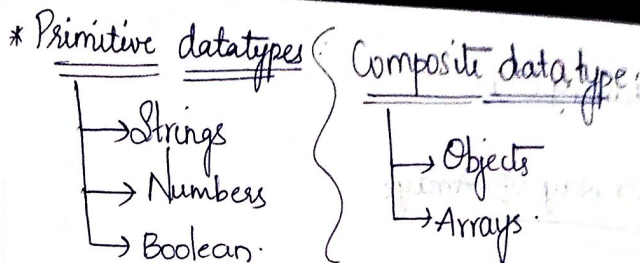 * Primitive datatypes
→ Strings
→ Numbers
→ Boolean.
Composite data type:
→ Objects
→ Arrays.